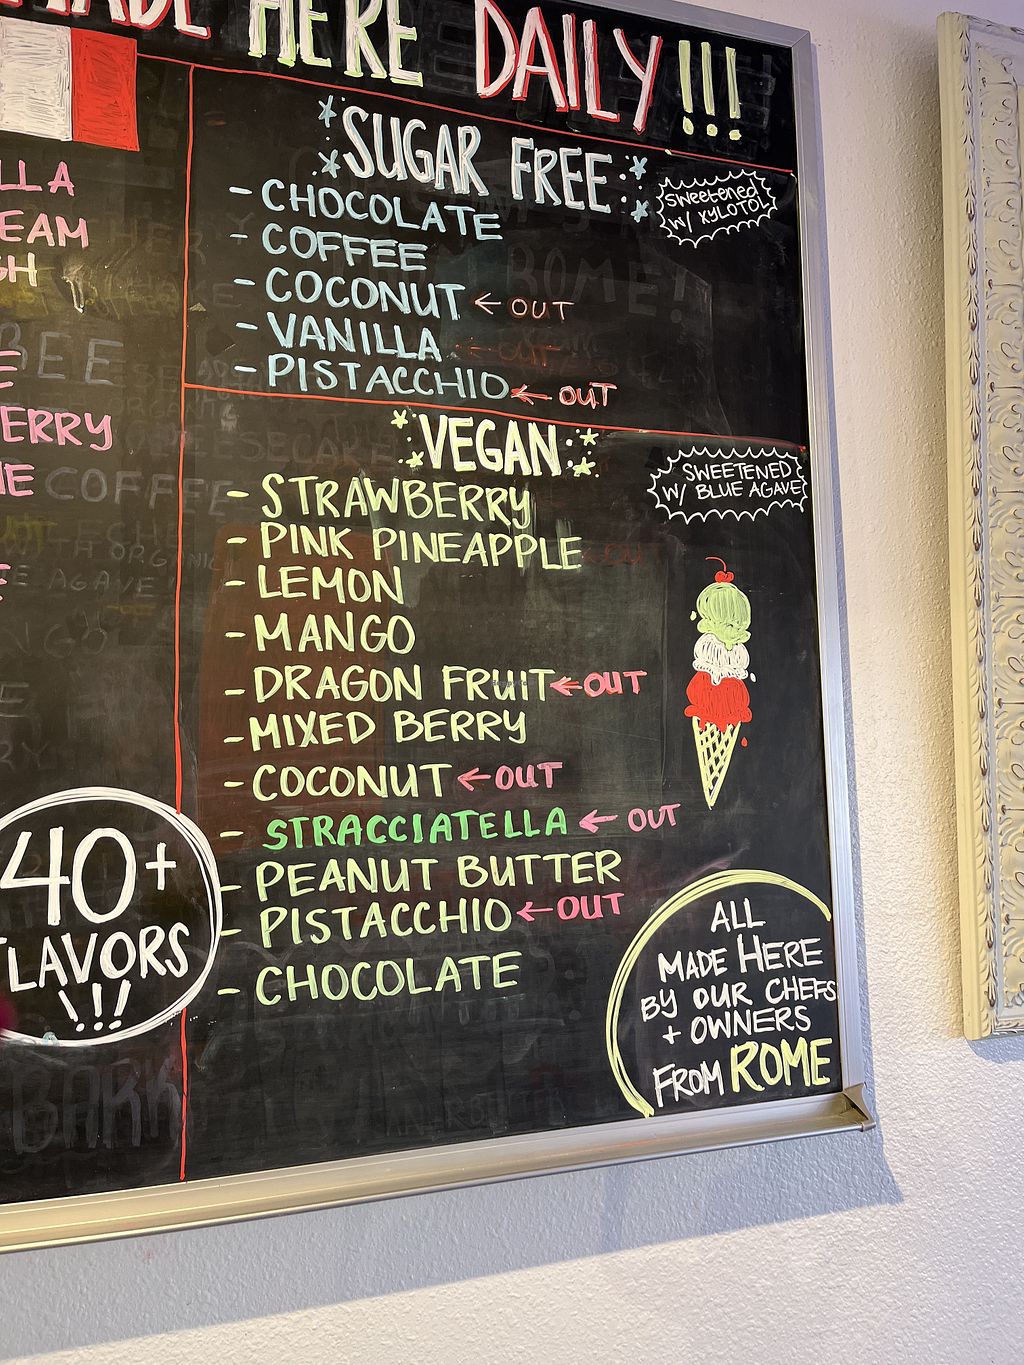 MADE HERE DAILY!!!
LLA
EAM
GH
BEE
E
ERRY
NE COFFEE
40+
FLAVORS
!!!
BARK
SUGAR FREE
SWEETENED
W/ XYLOTOL
- CHOCOLATE
- COFFEE
- COCONUT ← OUT
- VANILLA
- PISTACCHIO ← OUT
VEGAN
SWEETENED
W/ BLUE AGAVE
- STRAWBERRY
- PINK PINEAPPLE
- LEMON
- MANGO
- DRAGON FRUIT ← OUT
- MIXED BERRY
- COCONUT ← OUT
- STRACCIATELLA ← OUT
- PEANUT BUTTER
- PISTACCHIO ← OUT
- CHOCOLATE
ALL
MADE HERE
BY OUR CHEFS
+ OWNERS
FROM ROME